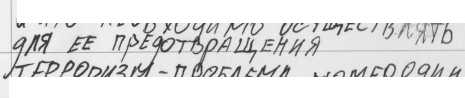 и что необходимо осуществлять
для ее предотвращения
терроризм - проблема номер один